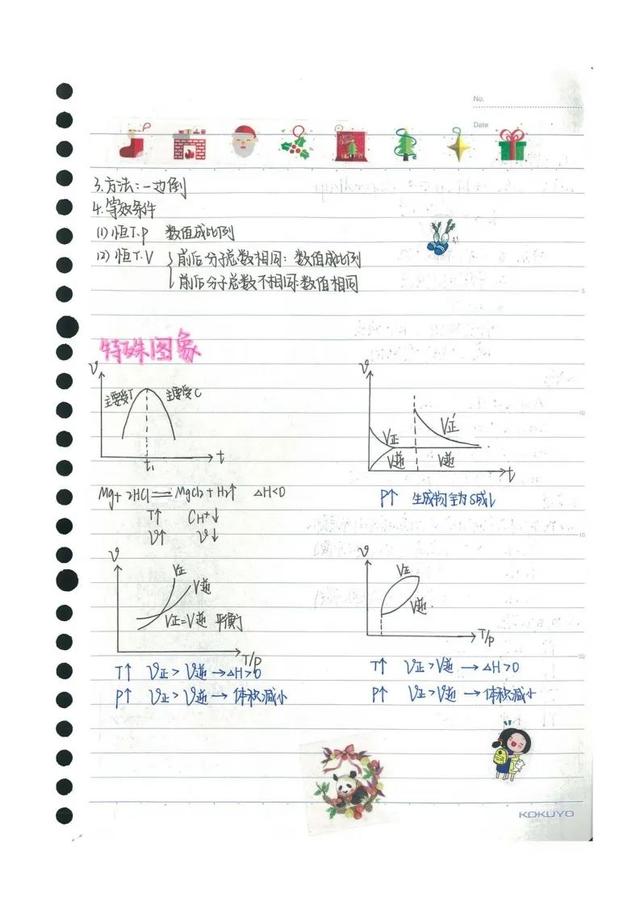 No.
Date
3.方法:一边倒
4.等效条件
(1)恒T.P 数值成比例
(2)恒T.V {前后分子总数相同:数值成比例
前后分子总数不相同:数值相同
特殊图象
v
主要受T 主要受C
t₁ t
Mg+2HCl══MgCl₂+H₂↑ △H<0
T↑ CH⁺↓
v↑ v↓
v
V正 V正'
V逆 V逆
t
P↑ 生成物全为S或l
v
V正
V逆
V正=V逆 平衡
T/P
T↑ v正>v逆→△H>0
P↑ v正>v逆→体积减小
v
V正
V逆
T/P
T↑ v正>v逆→△H>0
P↑ v正>v逆→体积减小
KOKUYO